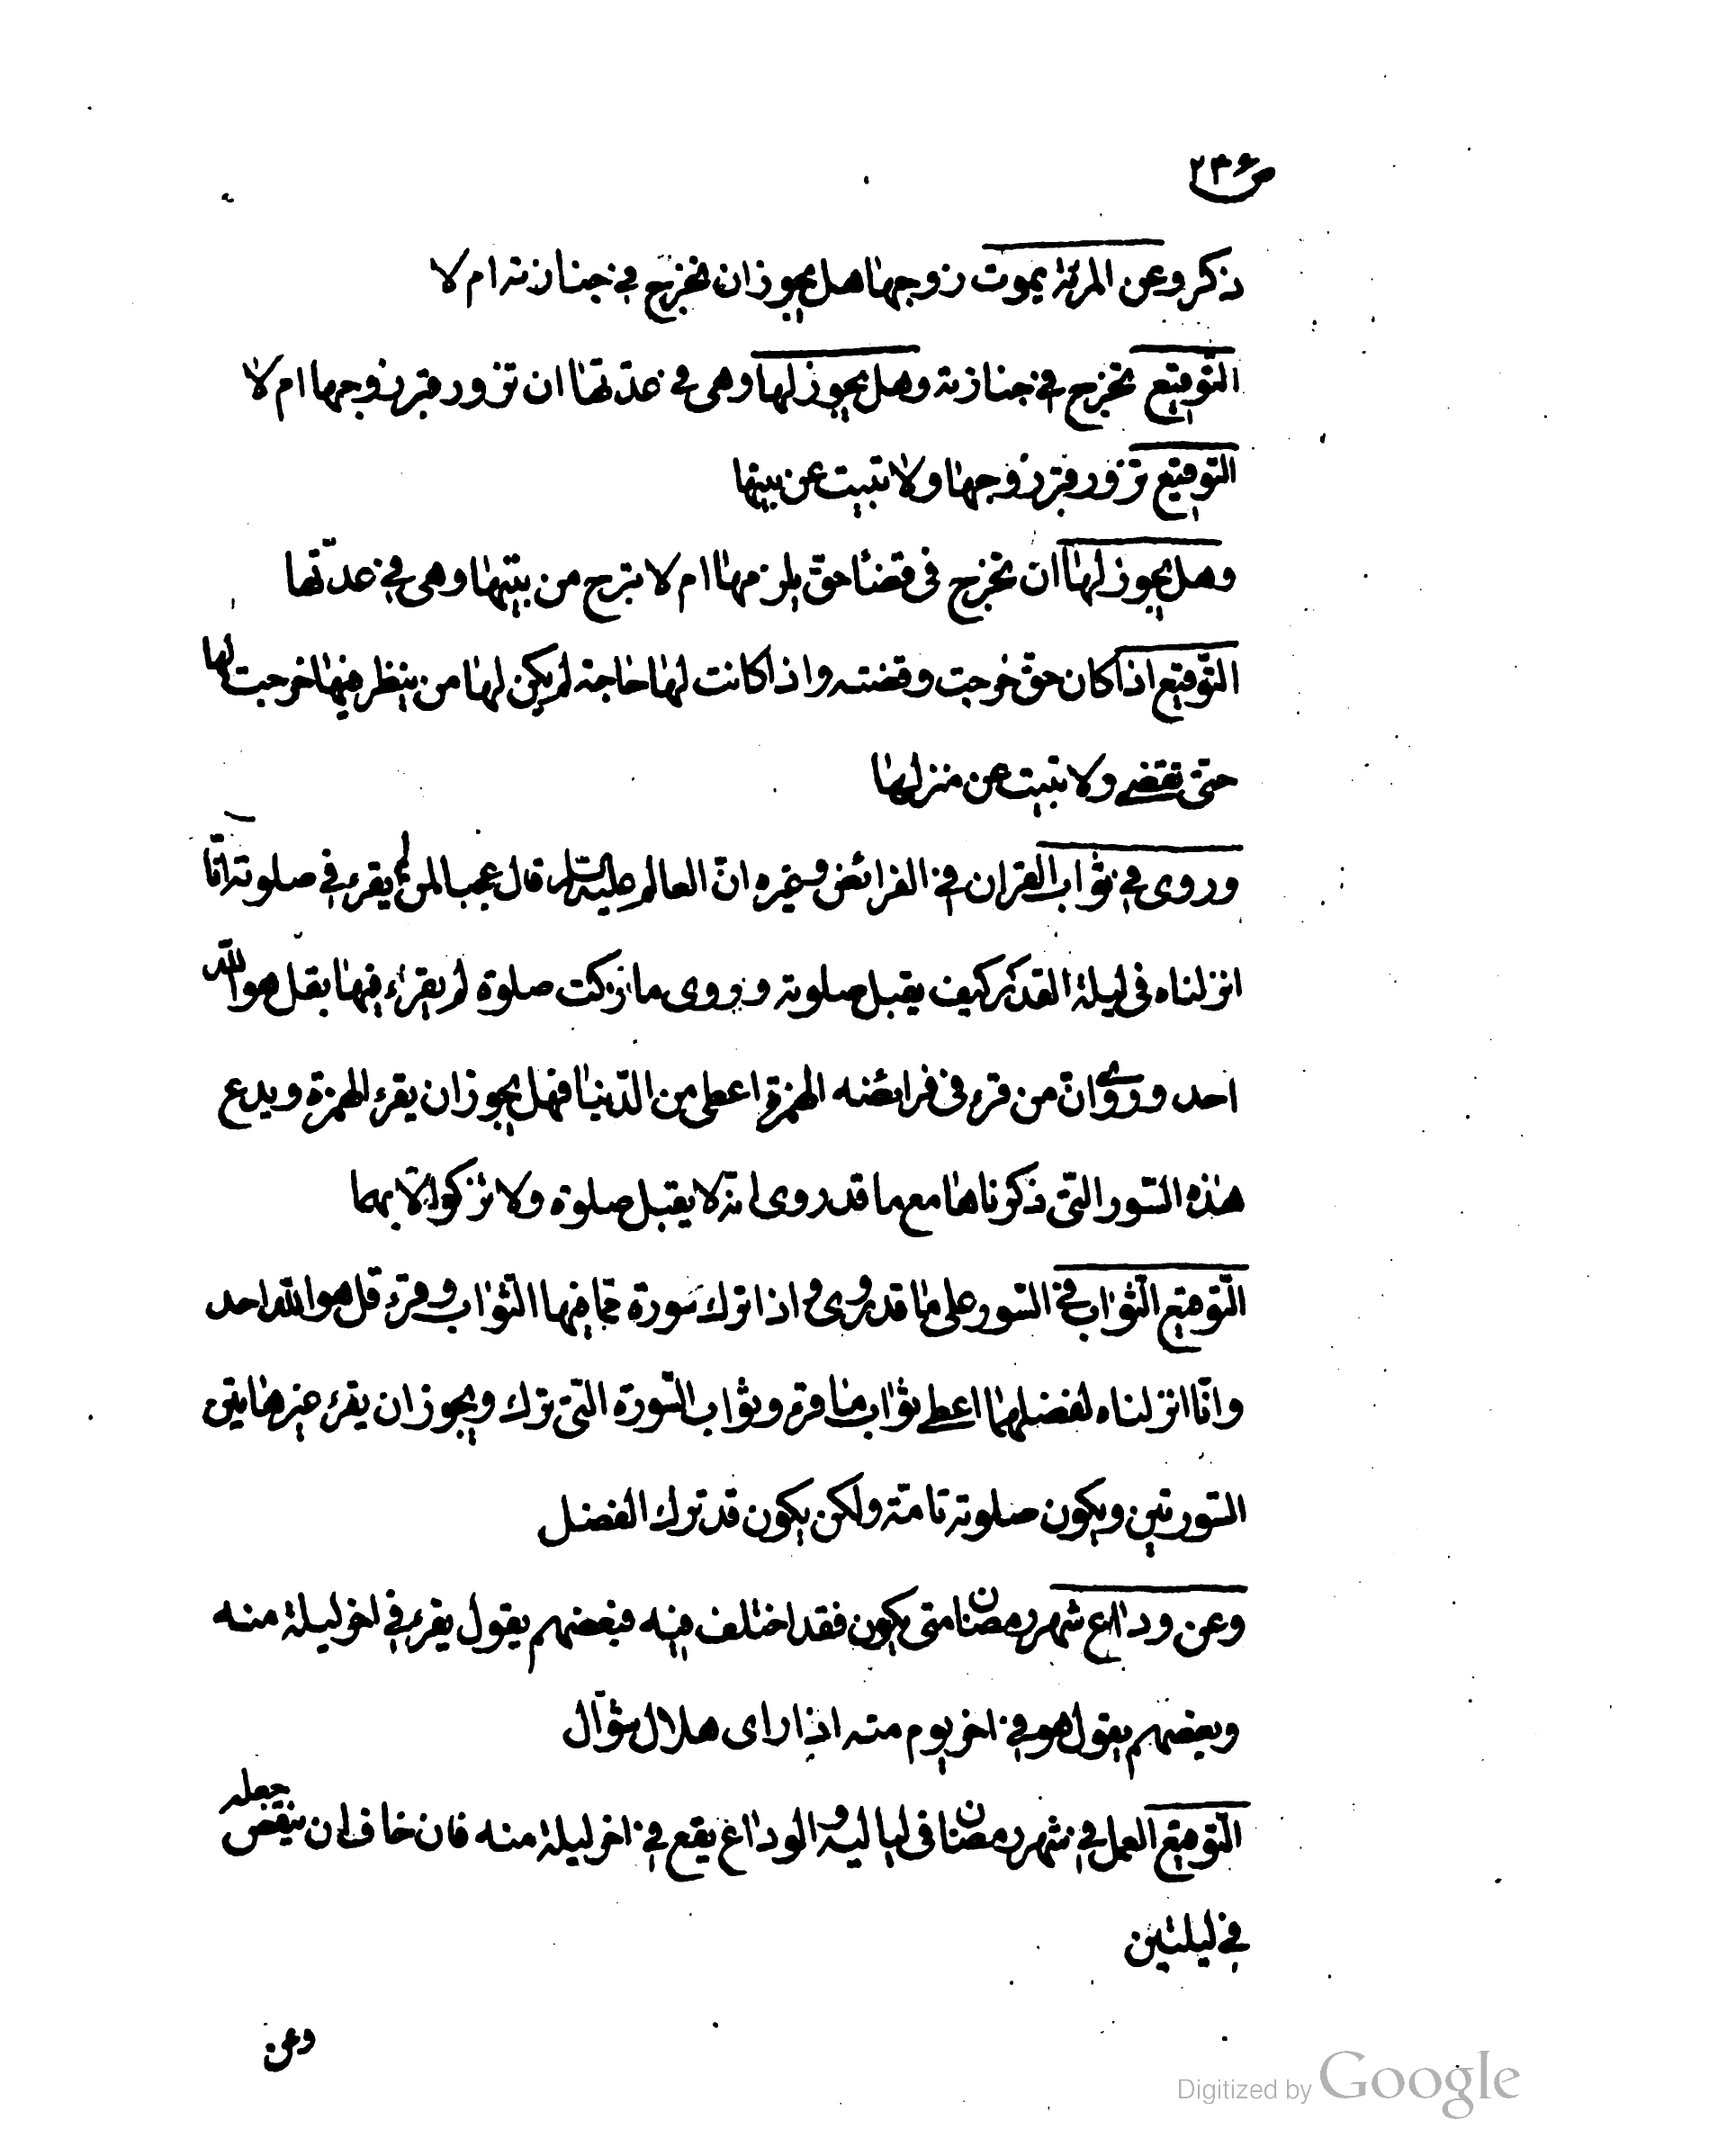 ص ٢٣٤
ذكر وعن المرئة يموت زوجها هل يجوز ان تخرج في جنازته ام لا
التّوقيع تخرج في جنازته وهل يجوز لها وهى في عدّتها ان تزور قبر زوجها ام لا
التوقيع تزور قبر زوجها ولا تبيت عن بيتها
وهل يجوز لها ان تخرج فى قضا حقّ يلزمها ام لا تبرح من بيتها وهى في عدّتها
التّوقيع اذا كان حقّ خرجت وقضته واذا كانت لها حاجة لم يكن لها من ينظر فيها خرجت لها
حتى تقضى ولا تبيت عن منزلها
وروى في ثواب القران في الفرائض وغيره انّ العالم عليه السّلم قال عجبا لمن لم يقرء في صلوته انّا
انزلناه فى ليلة القدر كيف يقبل صلوته وروى ما زكت صلوة لم يقراء فيها بقل هو الله
احد وروى انّ من قرء فى فرائضه الهمزة اعطى من الدّنيا فهل يجوز ان يقرء الهمزة ويدع
هذه السّور التى ذكرناها مع ما قد روى انّه لا يقبل صلوة ولا تزكو الّا بهما
التّوقيع الثّواب في السّور على ما قد روى و اذا ترك سورة ممّا فيها الثّواب و قرء قل هو الله احد
وانّا انزلناه لفضلهما اعطى ثواب ما قرء وثواب السّورة التى ترك ويجوز ان يقرء غير هاتين
السّورتين ويكون صلوته تامّة ولكن يكون قد ترك الفضل
وعن وداع شهر رمضان متى يكون فقد اختلف فيه فبعضهم يقول يقرء في اخر ليلة منه
وبعضهم يقول هو في اخر يوم منه اذا راى هلال شوّال
التّوقيع العمل في شهر رمضان فى لياليه و الوداع يقع في اخر ليلة منه فان خاف ان ينقص جعله
في ليلتين
وعن
Digitized by Google